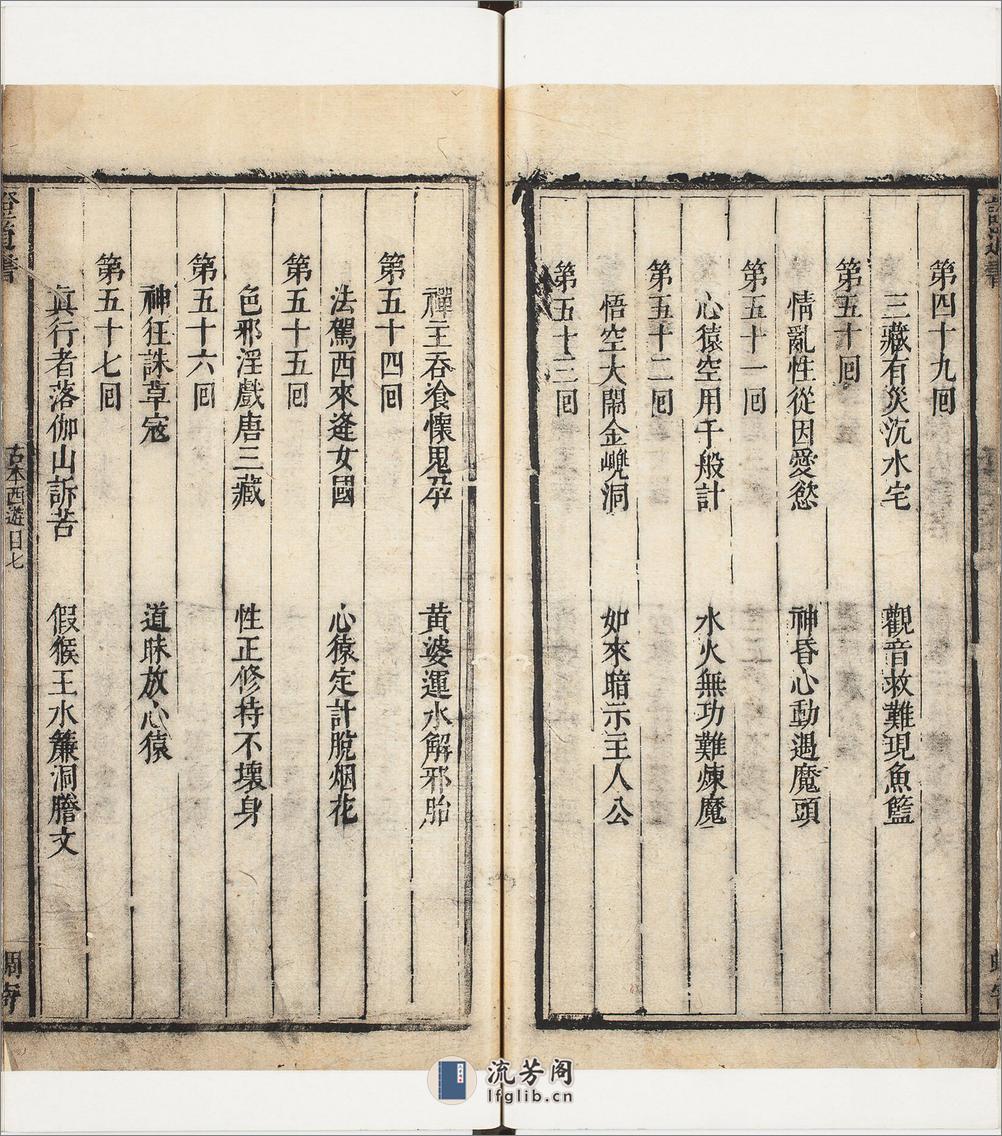 第四十九回
三藏有災沉水宅 觀音救難現魚籃
第五十回
情亂性從因愛慾 神昏心動遇魔頭
第五十一回
心猿空用千般計 水火無功難煉魔
第五十二回
悟空大鬧金㟲洞 如來暗示主人公
第五十三回
禪王吞飡懷鬼孕 黃婆運水解邪胎
第五十四回
法駕西來逢女國 心猿定計脫烟花
第五十五回
色邪淫戲唐三藏 性正修持不壞身
第五十六回
神狂誅草寇 道昧放心猿
第五十七回
真行者落伽山訴苦 假猴王水簾洞謄文
證道書
古本西遊目七
流芳阁
lfglib.cn